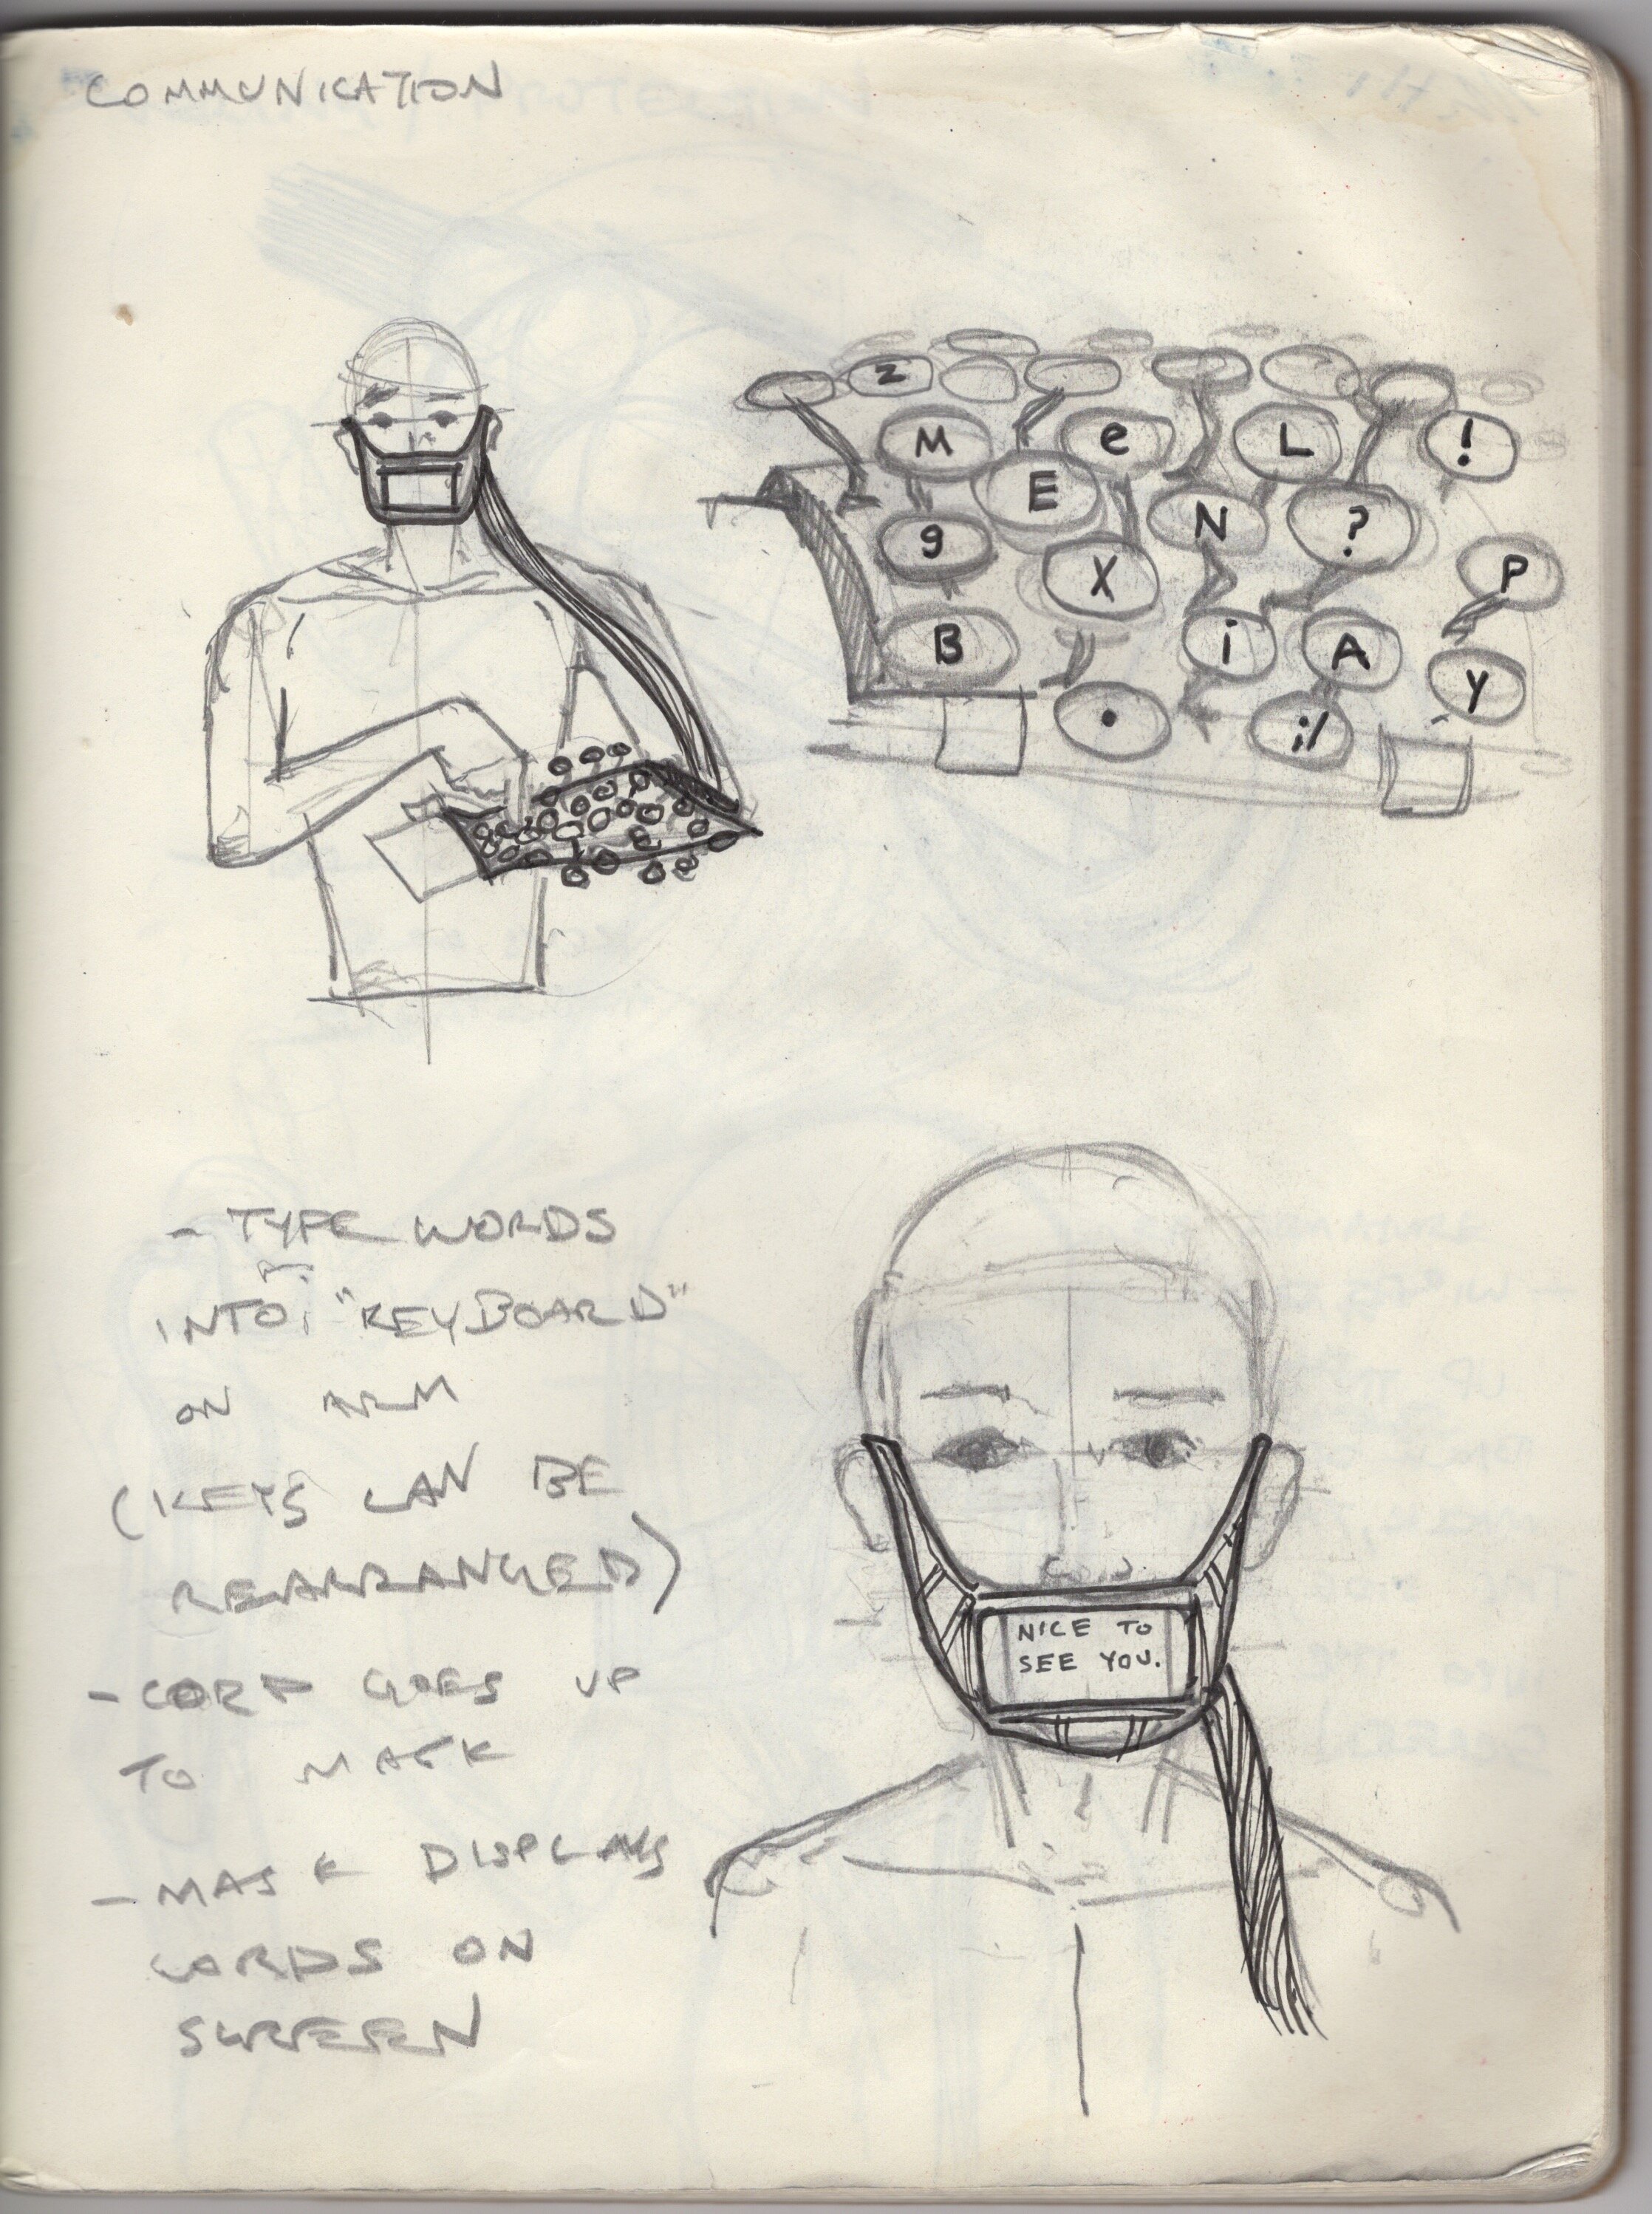 COMMUNICATION
Z
M e L !
E
9 N ?
X P
B i A
y
• ;/
- TYPE WORDS
INTO "KEYBOARD"
ON ARM
(KEYS CAN BE
REARRANGED)
- CORD GOES UP
TO MASK
- MASK DISPLAYS
WORDS ON
SCREEN
NICE TO
SEE YOU.